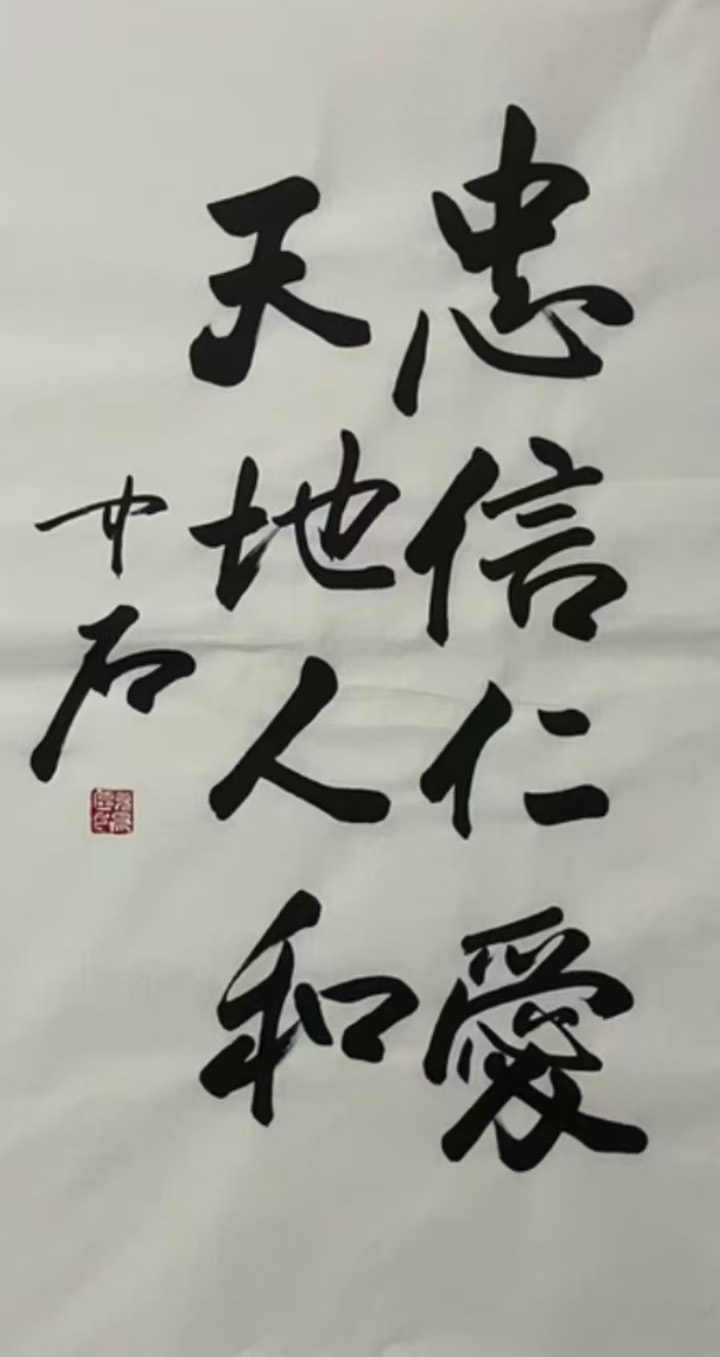 忠信仁愛
天地人和